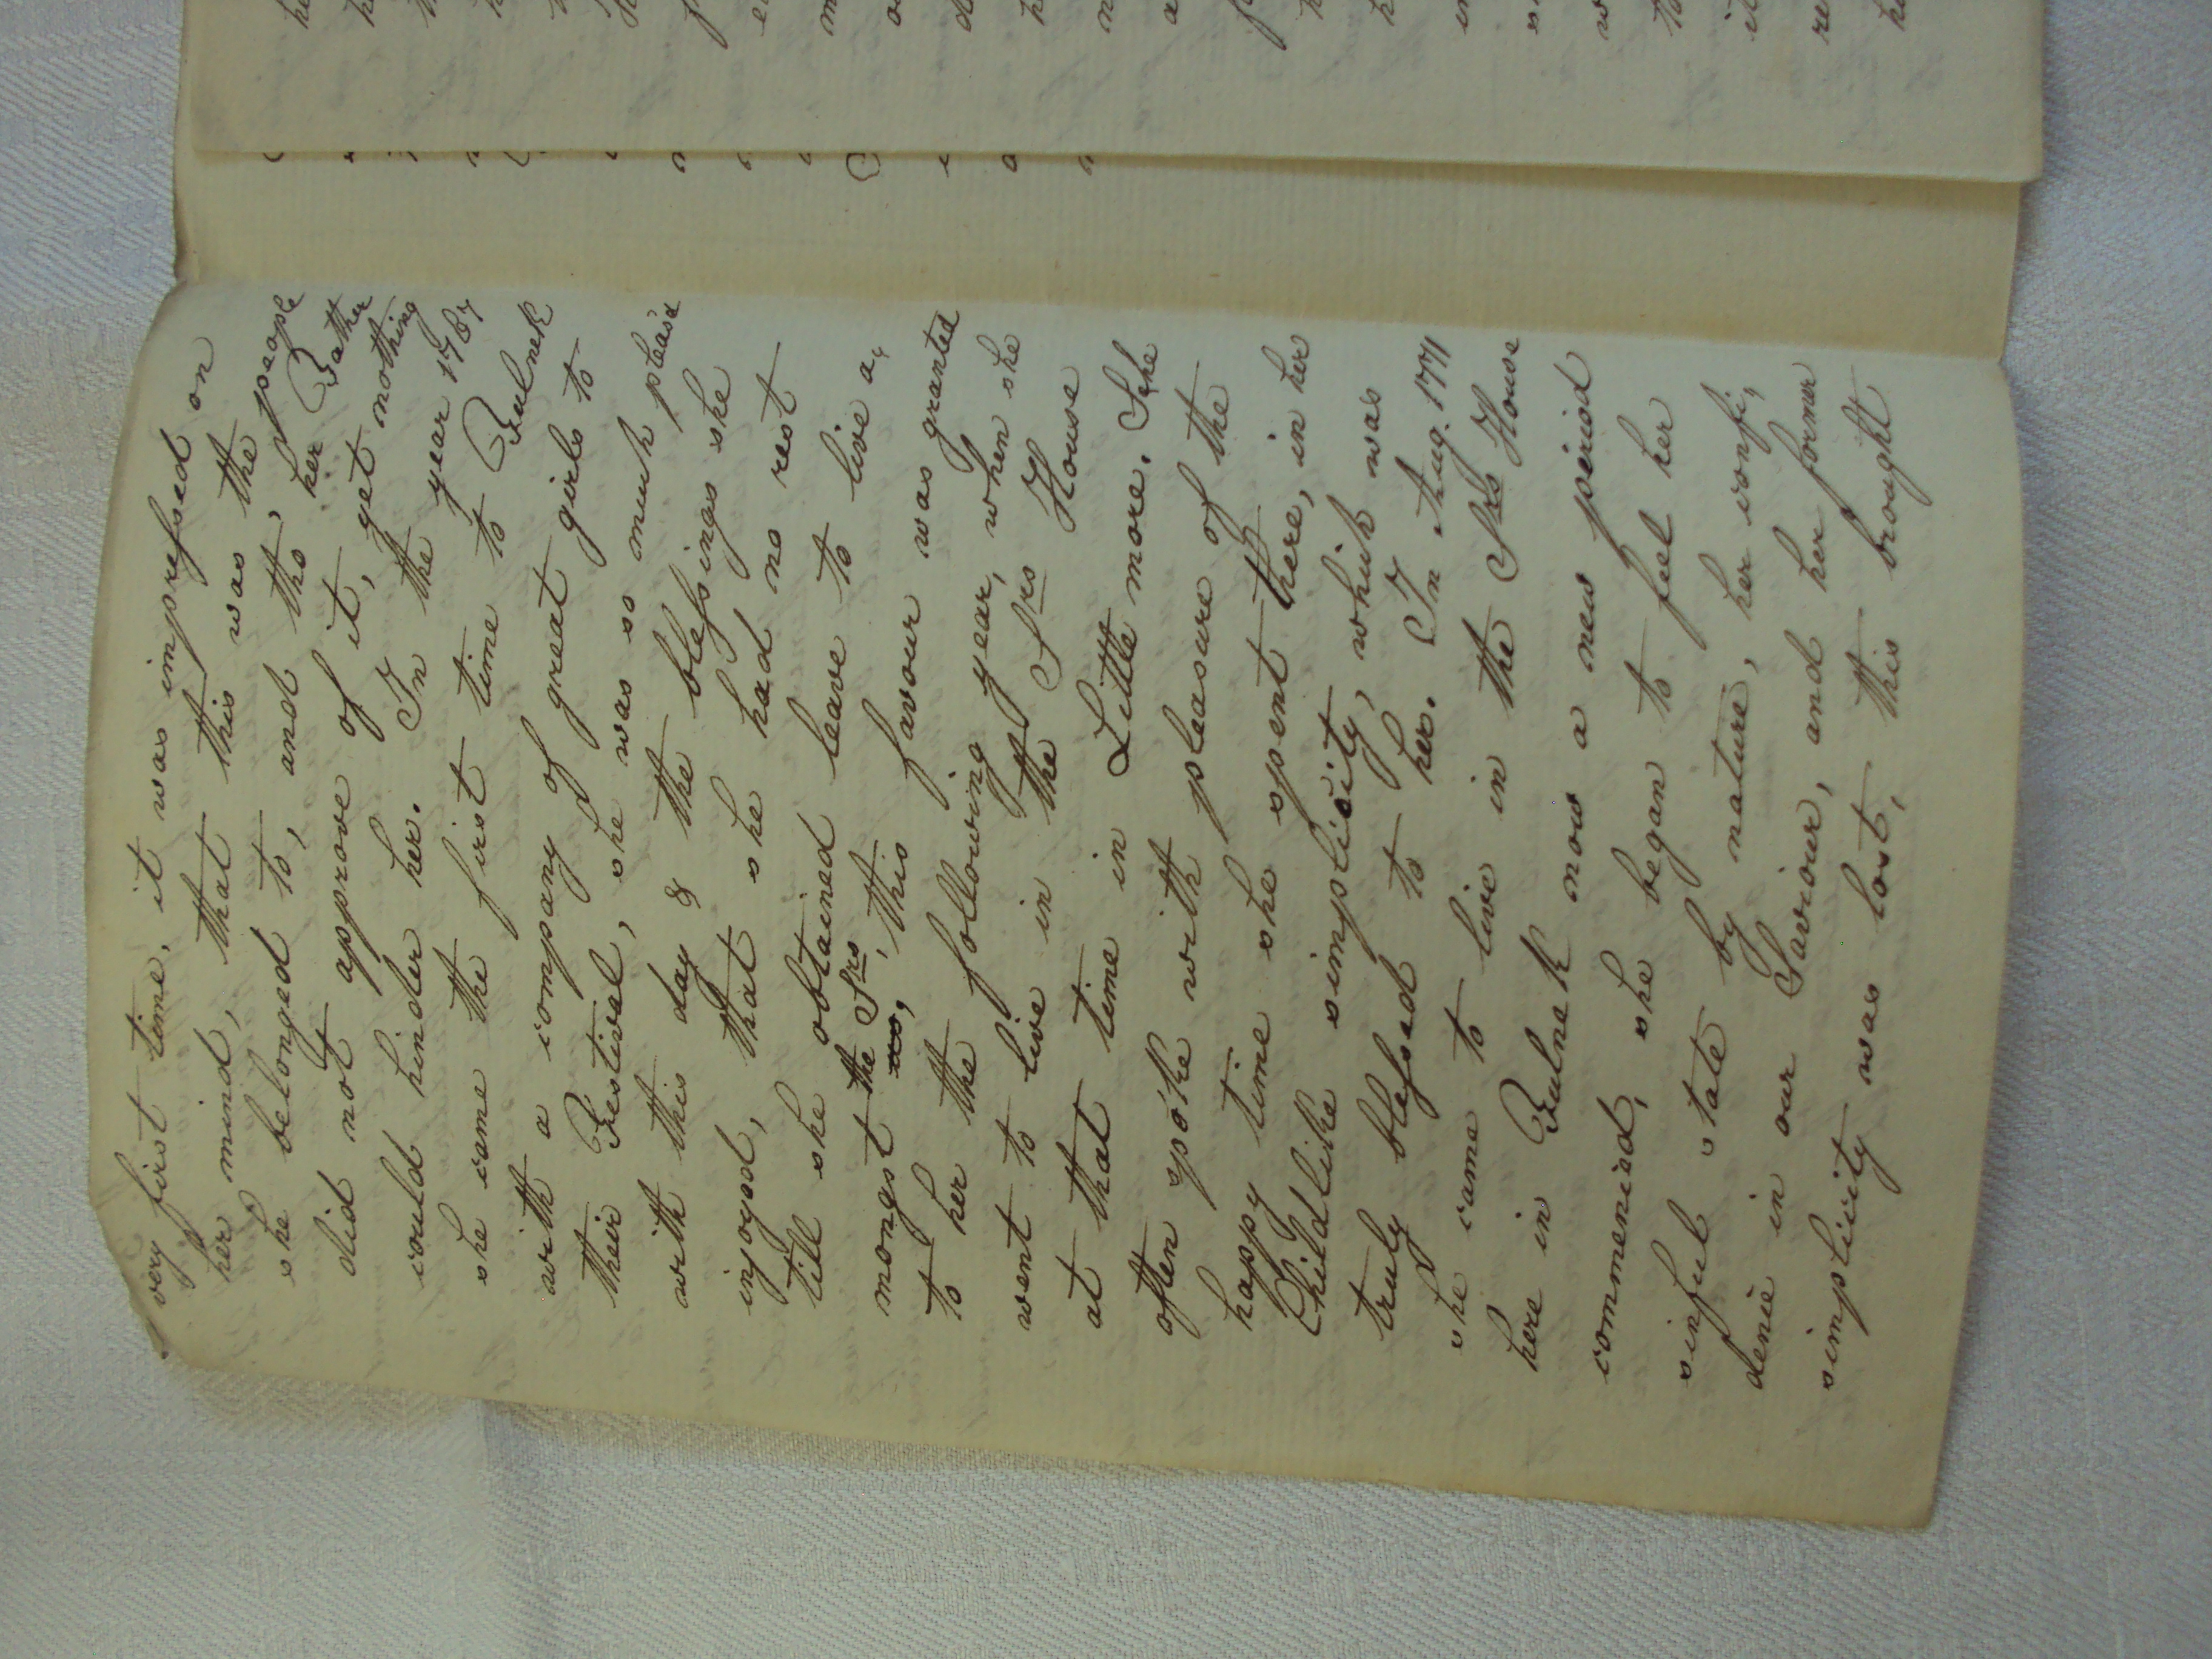 very first time, it was impressed on
her mind, that this was the people
she belonged to, and tho' her Father
did not approve of it, yet nothing
could hinder her. In the year 1767
she came the first time to Fulnek
with a company of great girls to
their Festival, she was so much pleas'd
with this day & the blessings she
injoyed, that she had no rest
till she obtained leave to live a„
mongst us, the Srs, this favour was granted
to her the following year, when she
went to live in the Srs House
at that time in Little more. She
often spoke with pleasure of the
happy time she spent there, in her
Childlike simplicity, which was
truly blessed to her. In Aug. 1771
she came to live in the Srs House
here in Fulnek now a new period
commenced, she began to feel her
sinful state by nature, her confi„
dence in our Saviour, and her former
simplicity was lost, this brought